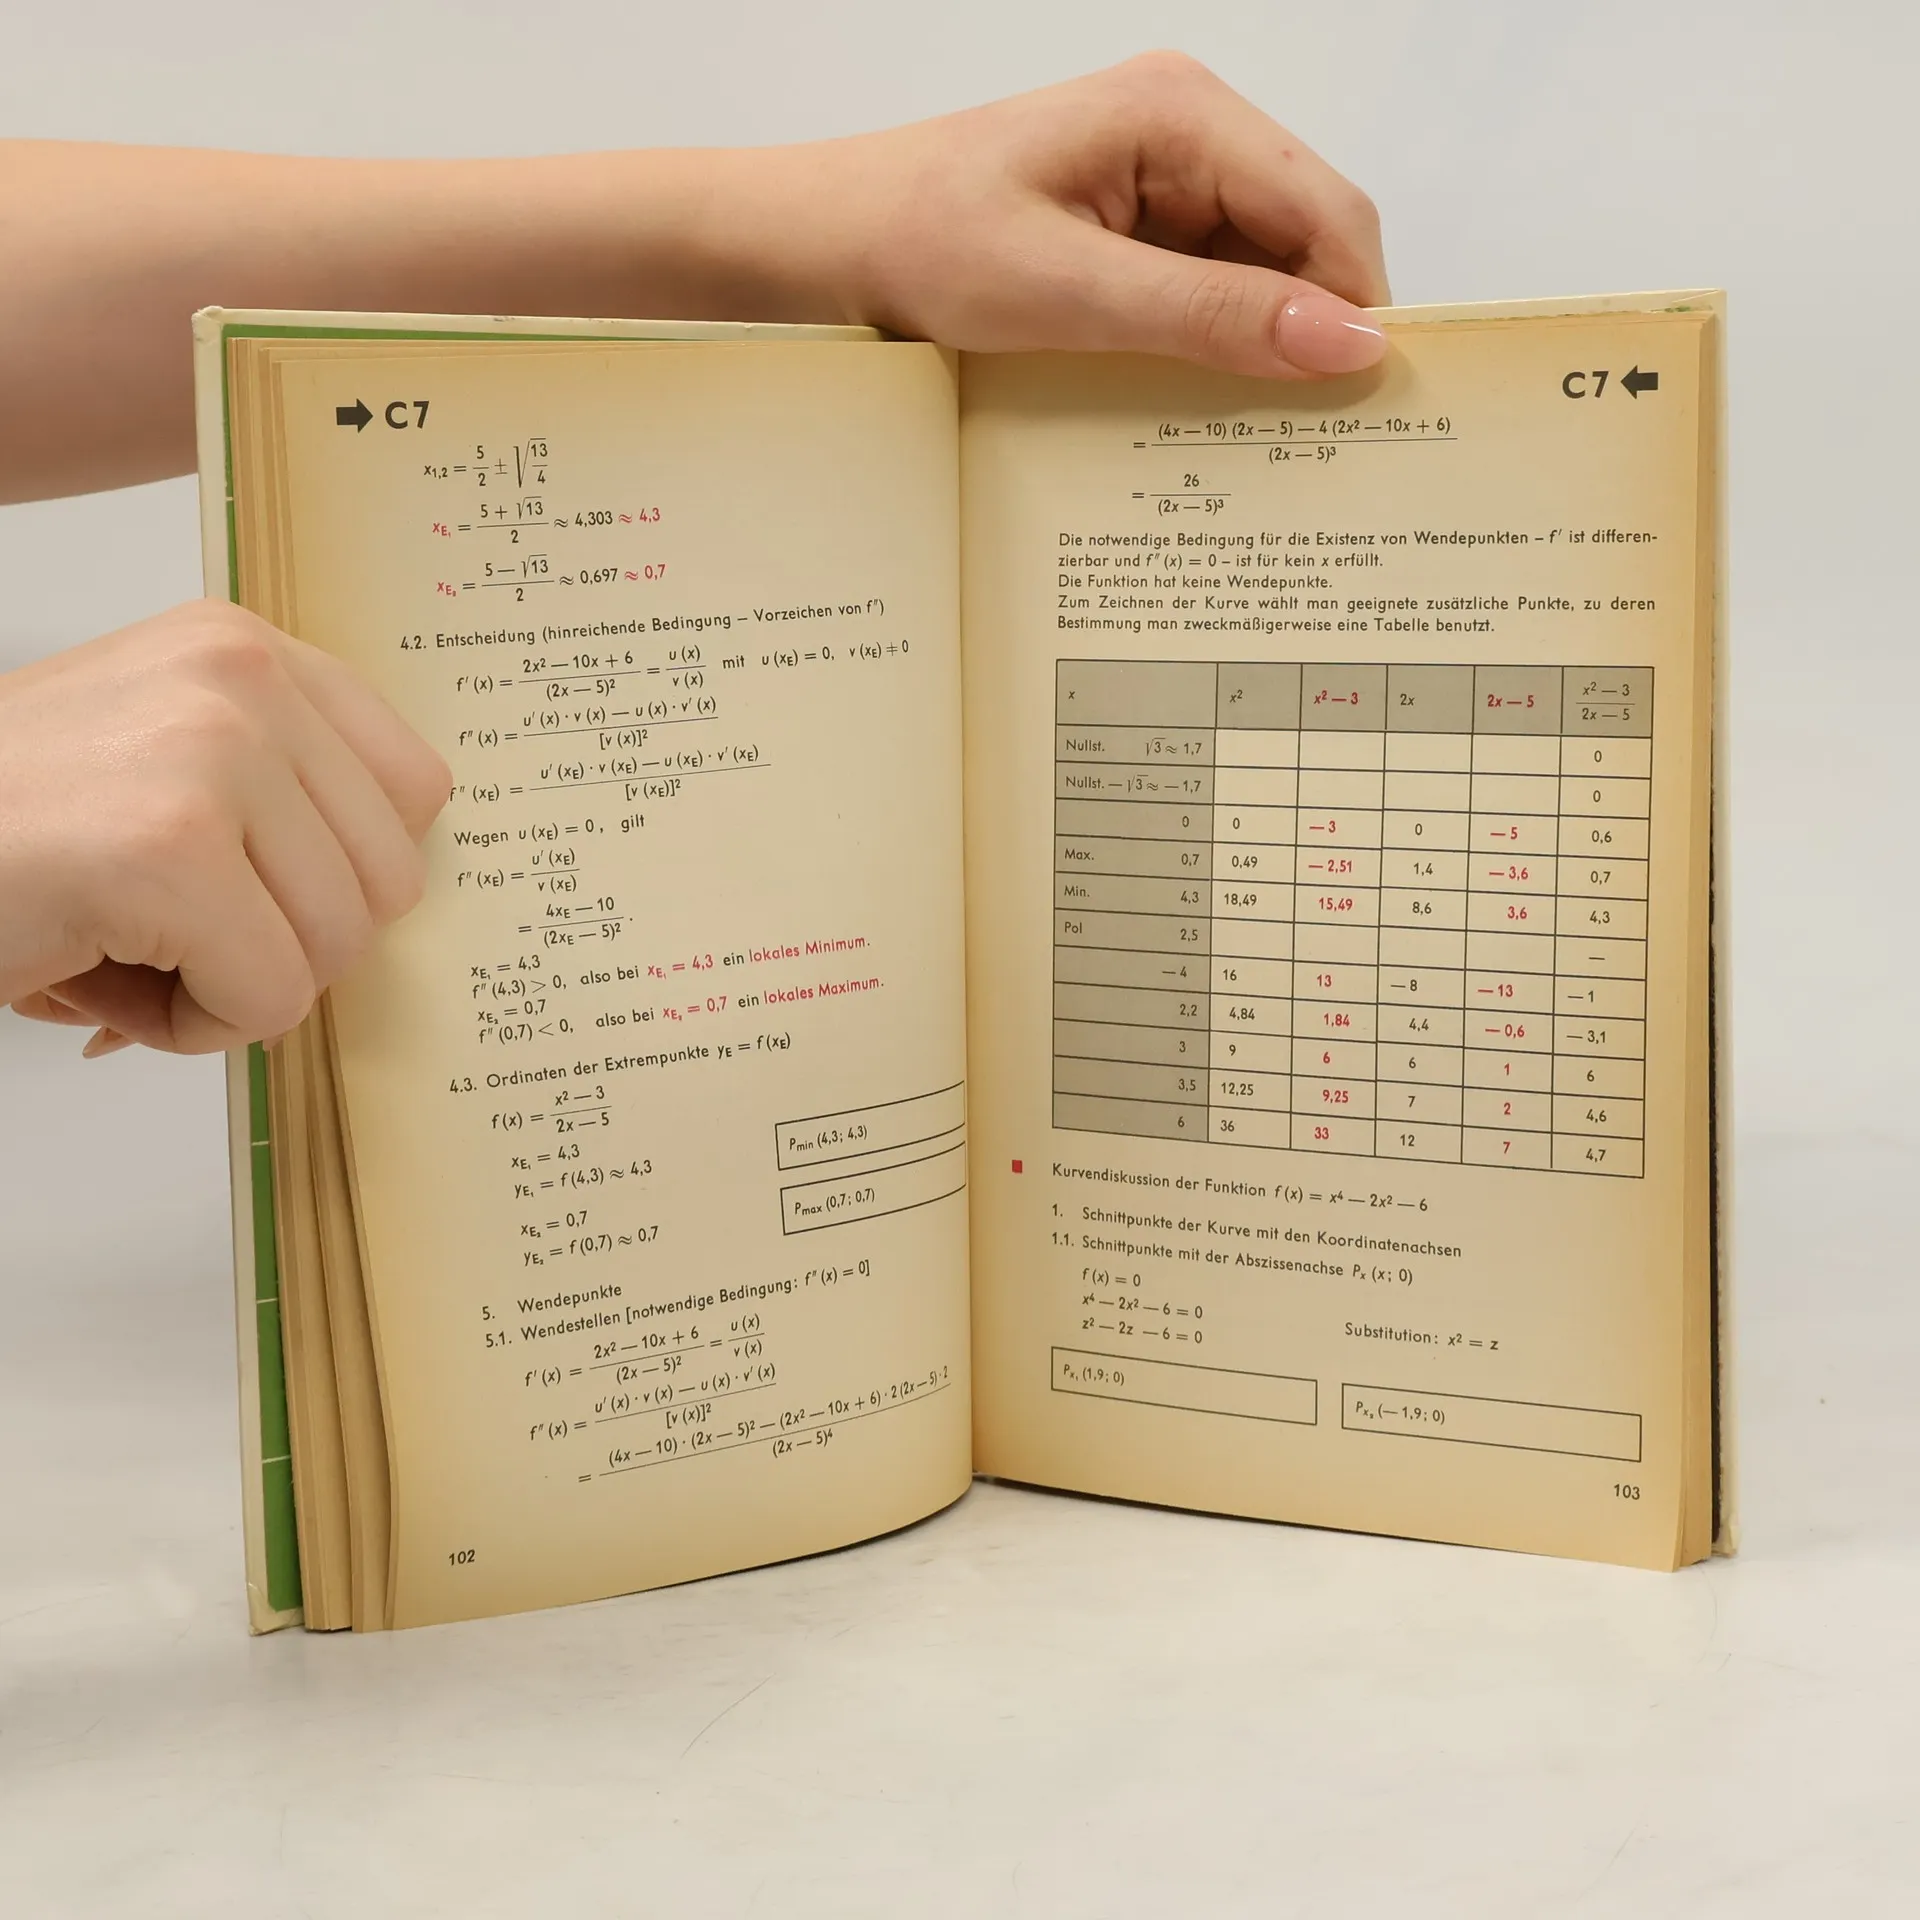 C7
x1,2 = 5/2 ± √(13/4)
xE₁ = (5 + √13)/2 ≈ 4,303 ≈ 4,3
xE₂ = (5 — √13)/2 ≈ 0,697 ≈ 0,7
4.2. Entscheidung (hinreichende Bedingung – Vorzeichen von f″)
f′ (x) = (2x² — 10x + 6)/(2x — 5)² = u (x)/v (x) mit u (xE) = 0, v (xE) ≠ 0
f″ (x) = (u′ (x) · v (x) — u (x) · v′ (x))/[v (x)]²
f″ (xE) = (u′ (xE) · v (xE) — u (xE) · v′ (xE))/[v (xE)]²
Wegen u (xE) = 0, gilt
f″ (xE) = u′ (xE)/v (xE)
= (4xE — 10)/(2xE — 5)² .
xE₁ = 4,3
f″ (4,3) > 0, also bei xE₁ = 4,3 ein lokales Minimum.
xE₂ = 0,7
f″ (0,7) < 0, also bei xE₂ = 0,7 ein lokales Maximum.
4.3. Ordinaten der Extrempunkte yE = f (xE)
f (x) = (x² — 3)/(2x — 5)
xE₁ = 4,3
yE₁ = f (4,3) ≈ 4,3
Pmin (4,3; 4,3)
xE₂ = 0,7
yE₂ = f (0,7) ≈ 0,7
Pmax (0,7; 0,7)
5. Wendepunkte
5.1. Wendestellen [notwendige Bedingung: f″ (x) = 0]
f′ (x) = (2x² — 10x + 6)/(2x — 5)² = u (x)/v (x)
f″ (x) = (u′ (x) · v (x) — u (x) · v′ (x))/[v (x)]²
= ((4x — 10) · (2x — 5)² — (2x² — 10x + 6) · 2 (2x — 5) · 2)/(2x — 5)⁴
102
C7
= ((4x — 10) (2x — 5) — 4 (2x² — 10x + 6))/(2x — 5)³
= 26/(2x — 5)³
Die notwendige Bedingung für die Existenz von Wendepunkten – f′ ist differen-
zierbar und f″ (x) = 0 – ist für kein x erfüllt.
Die Funktion hat keine Wendepunkte.
Zum Zeichnen der Kurve wählt man geeignete zusätzliche Punkte, zu deren
Bestimmung man zweckmäßigerweise eine Tabelle benutzt.
x x² x² — 3 2x 2x — 5 (x² — 3)/(2x — 5)
Nullst. √3 ≈ 1,7 0
Nullst. — √3 ≈ — 1,7 0
0 0 — 3 0 — 5 0,6
Max. 0,7 0,49 — 2,51 1,4 — 3,6 0,7
Min. 4,3 18,49 15,49 8,6 3,6 4,3
Pol 2,5 —
— 4 16 13 — 8 — 13 — 1
2,2 4,84 1,84 4,4 — 0,6 — 3,1
3 9 6 6 1 6
3,5 12,25 9,25 7 2 4,6
6 36 33 12 7 4,7
Kurvendiskussion der Funktion f (x) = x⁴ — 2x² — 6
1. Schnittpunkte der Kurve mit den Koordinatenachsen
1.1. Schnittpunkte mit der Abszissenachse Px (x; 0)
f (x) = 0
x⁴ — 2x² — 6 = 0
z² — 2z — 6 = 0 Substitution: x² = z
Px₁ (1,9; 0) Px₂ (— 1,9; 0)
103